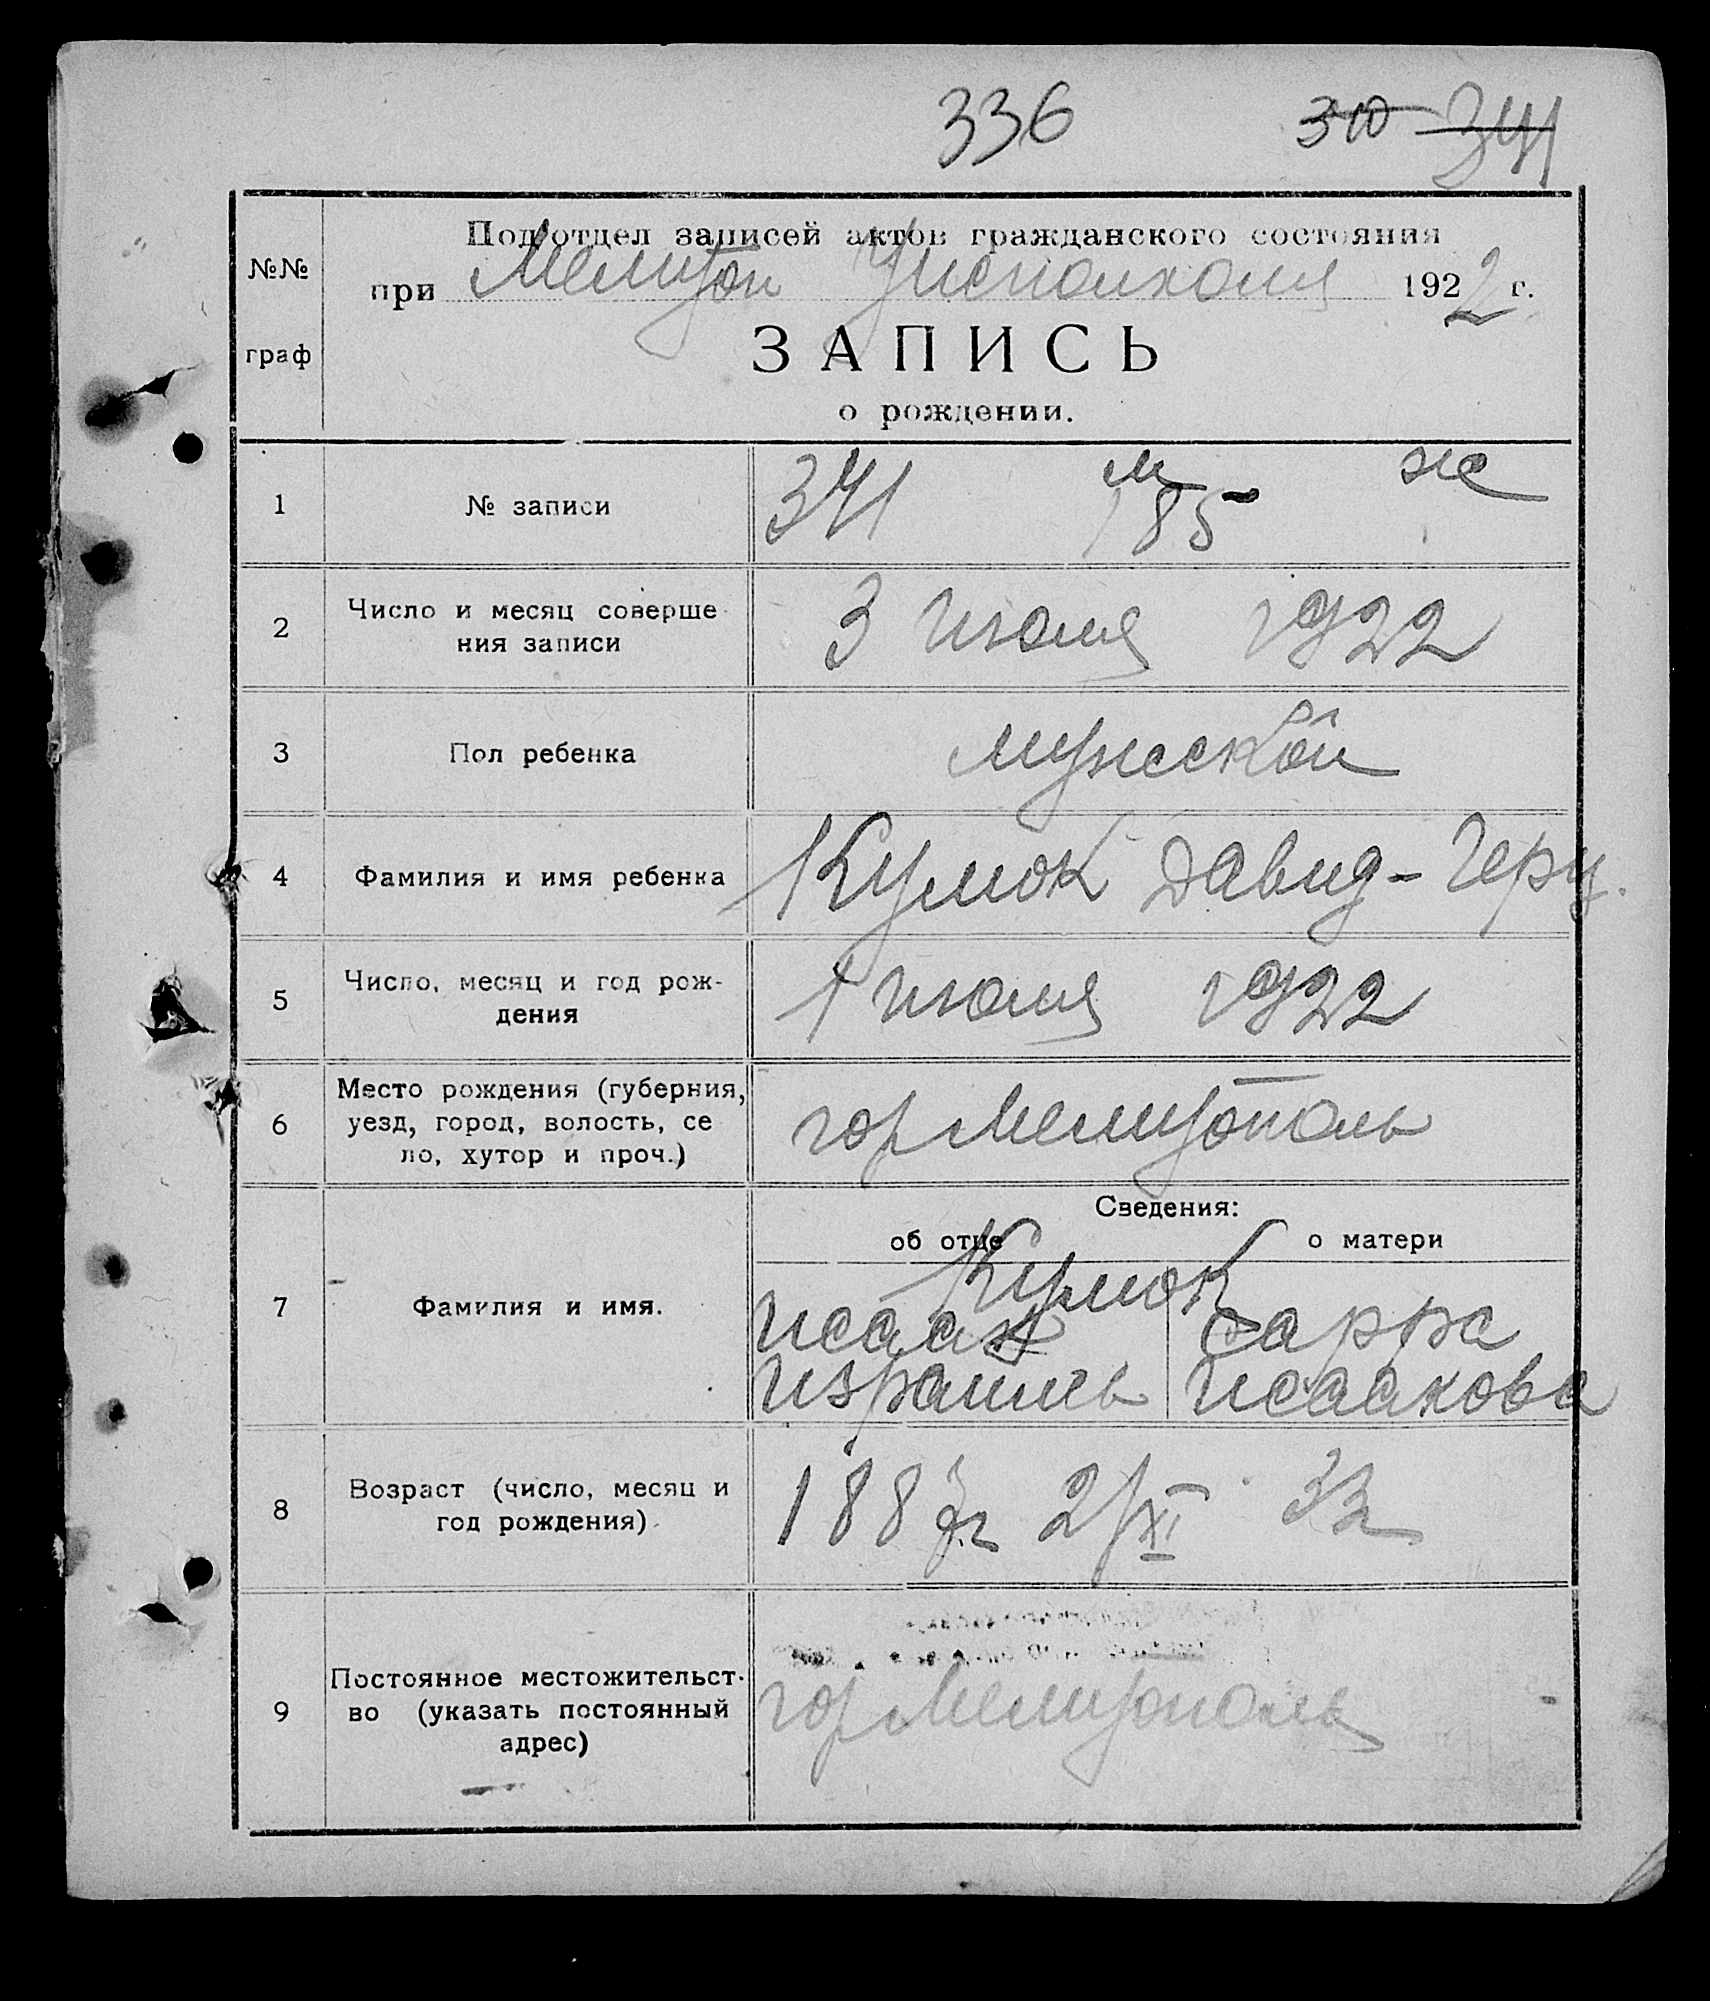 336 310 341
№№ граф
Подотдел записей актов гражданского состояния
при Мелитоп Уисполкома 1922 г.
ЗАПИСЬ
о рождении.
1 № записи 341 м 185 ж
2 Число и месяц соверше
ния записи
3 июля 1922
3 Пол ребенка мужской
4 Фамилия и имя ребенка Кумок Давид-Герц.
5 Число, месяц и год рож-
дения
1 июля 1922
6 Место рождения (губерния,
уезд, город, волость, се
ло, хутор и проч.)
гор Мелитополь
Сведения:
об отце о матери
7 Фамилия и имя.
Кумок
Исаак Сарра
Израилев Исаакова
8 Возраст (число, месяц и
год рождения)
188 г 2/XI 33
9 Постоянное местожительст-
во (указать постоянный
адрес)
гор Мелитополь